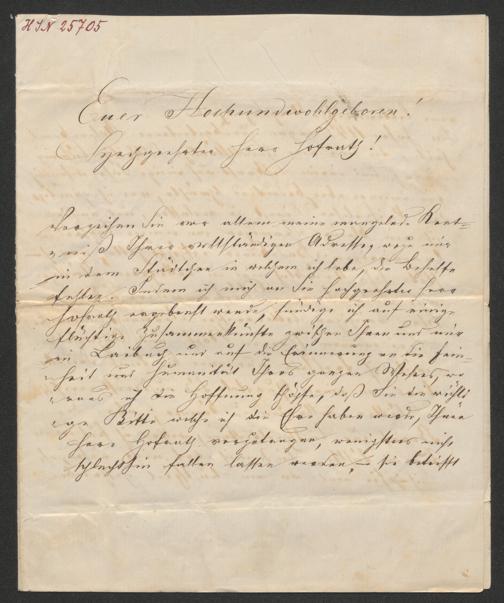 HIN 25705
Euer Hochundwohlgeboren!
Hochgeehrter Herr Hofrath!
Verzeihen Sie vor allem meine mangelnde Kent-
niß Ihrer vollständigen Adresse, wozu mir
in dem Städtchen in welchem ich lebe, die Behelfe
fehlen. Indem ich mich an Sie hochgeehrter Herr
Hofrath ergebenst wende, sündige ich auf einige
flüchtige Zusammenkünfte zwischen Ihnen und mir
in Laibach und auf die Erinnerung an die Fein-
heit und Humanität Ihres ganzen Wesens, wo
raus ich die Hoffnung schöpfe, daß Sie die
Bitte welche ich die Ehre haben werde, Ihnen
Herr Hofrath vorzutragen, wenigstens nicht
schlechthin fallen lassen werden, – sie betrifft